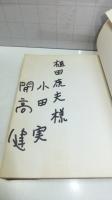 植田康夫様
小田実
開高健